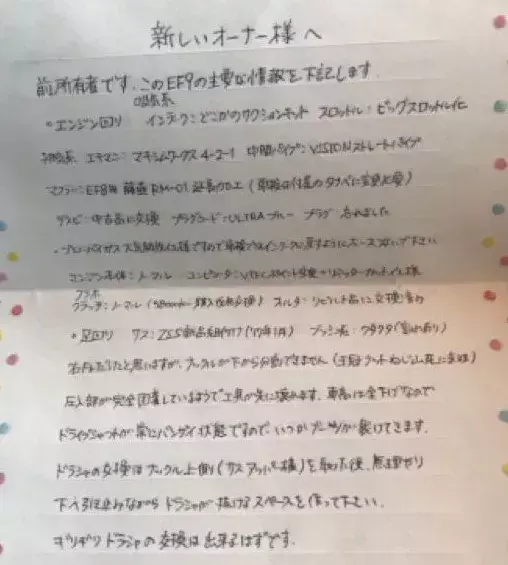 新しいオーナー様へ
前所有者です。このEF9の主要な情報を下記します。
吸気系
・エンジン回り インテーク:どこかのサクションキット スロットル:ビッグスロットル化
排気系 エキマニ:マキシムワークス4-2-1 中間パイプ:VISIONストレートパイプ
マフラー:EF8用 藤壺RM-01 延長加工(車検は付属のタナベに変更必要)
デスビ:中古品に交換 プラグコード:ULTRAブルー プラグ 忘れました
・ブローバイガス大気開放仕様ですので車検ではインテークに戻すようにホースつないで下さい
エンジン本体:ノーマル コンピュータ:VTECポイント変更・リミッターカット仕様
クラッチ:ノーマル セルモータ:リビルト品に交換済み
・足回り サス:ZSS新品組付け ブッシュ類:ガタガタ
右も左もだと思いますが、ナックルが下から分割できません
圧入部が完全固着しているようで工具が先に壊れます。車高は全下げなので
ドライブシャフトが常にバンザイ状態ですので、いつかブーツが裂けてきます。
ドラシャの交換はナックル上側(サスアッパー側)を取った後、無理やり
下へ引き込みながらドラシャが抜けるスペースを作って下さい。
ギリギリドラシャの交換は出来るはずです。